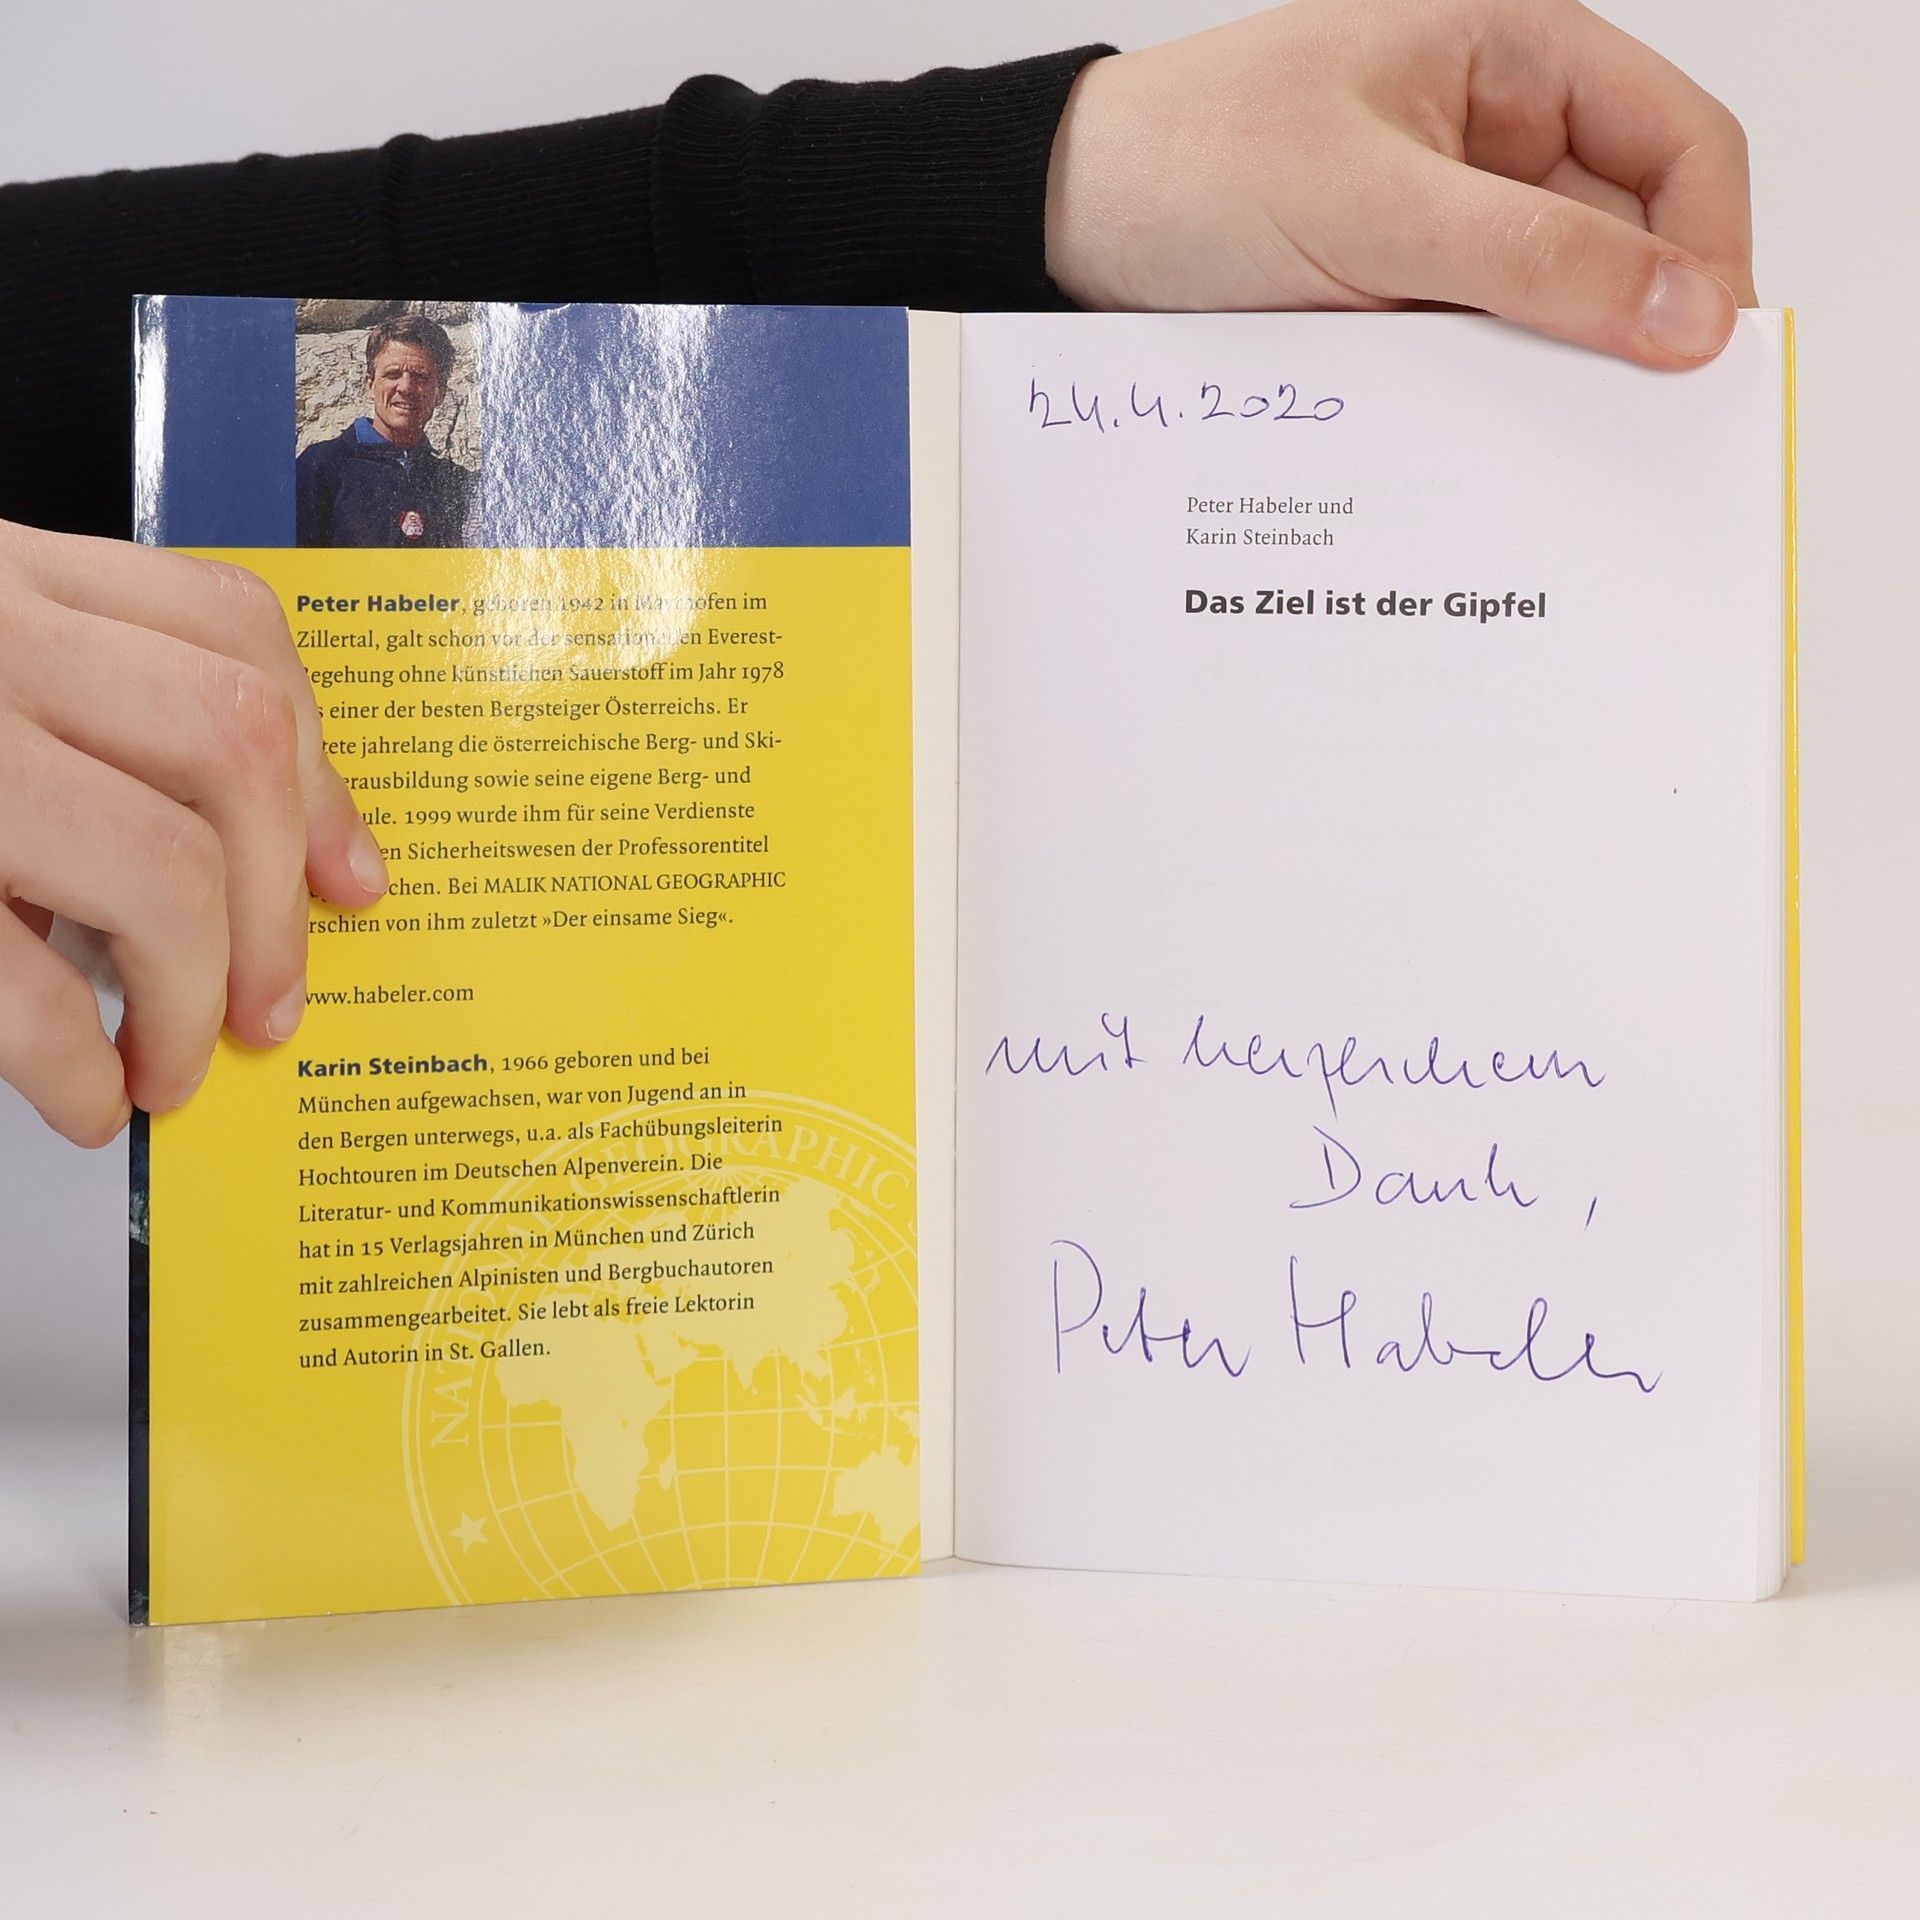 Peter Habeler, geboren 1942 in Mayrhofen im
Zillertal, galt schon vor der sensationellen Everest-
egehung ohne künstlichen Sauerstoff im Jahr 1978
s einer der besten Bergsteiger Österreichs. Er
tete jahrelang die österreichische Berg- und Ski-
erausbildung sowie seine eigene Berg- und
ule. 1999 wurde ihm für seine Verdienste
en Sicherheitswesen der Professorentitel
chen. Bei MALIK NATIONAL GEOGRAPHIC
rschien von ihm zuletzt »Der einsame Sieg«.
www.habeler.com
Karin Steinbach, 1966 geboren und bei
München aufgewachsen, war von Jugend an in
den Bergen unterwegs, u.a. als Fachübungsleiterin
Hochtouren im Deutschen Alpenverein. Die
Literatur- und Kommunikationswissenschaftlerin
hat in 15 Verlagsjahren in München und Zürich
mit zahlreichen Alpinisten und Bergbuchautoren
zusammengearbeitet. Sie lebt als freie Lektorin
und Autorin in St. Gallen.
NATIONAL GEOGRAPHIC
24.4.2020
Peter Habeler und
Karin Steinbach
Das Ziel ist der Gipfel
mit herzlichem
Dank,
Peter Habeler